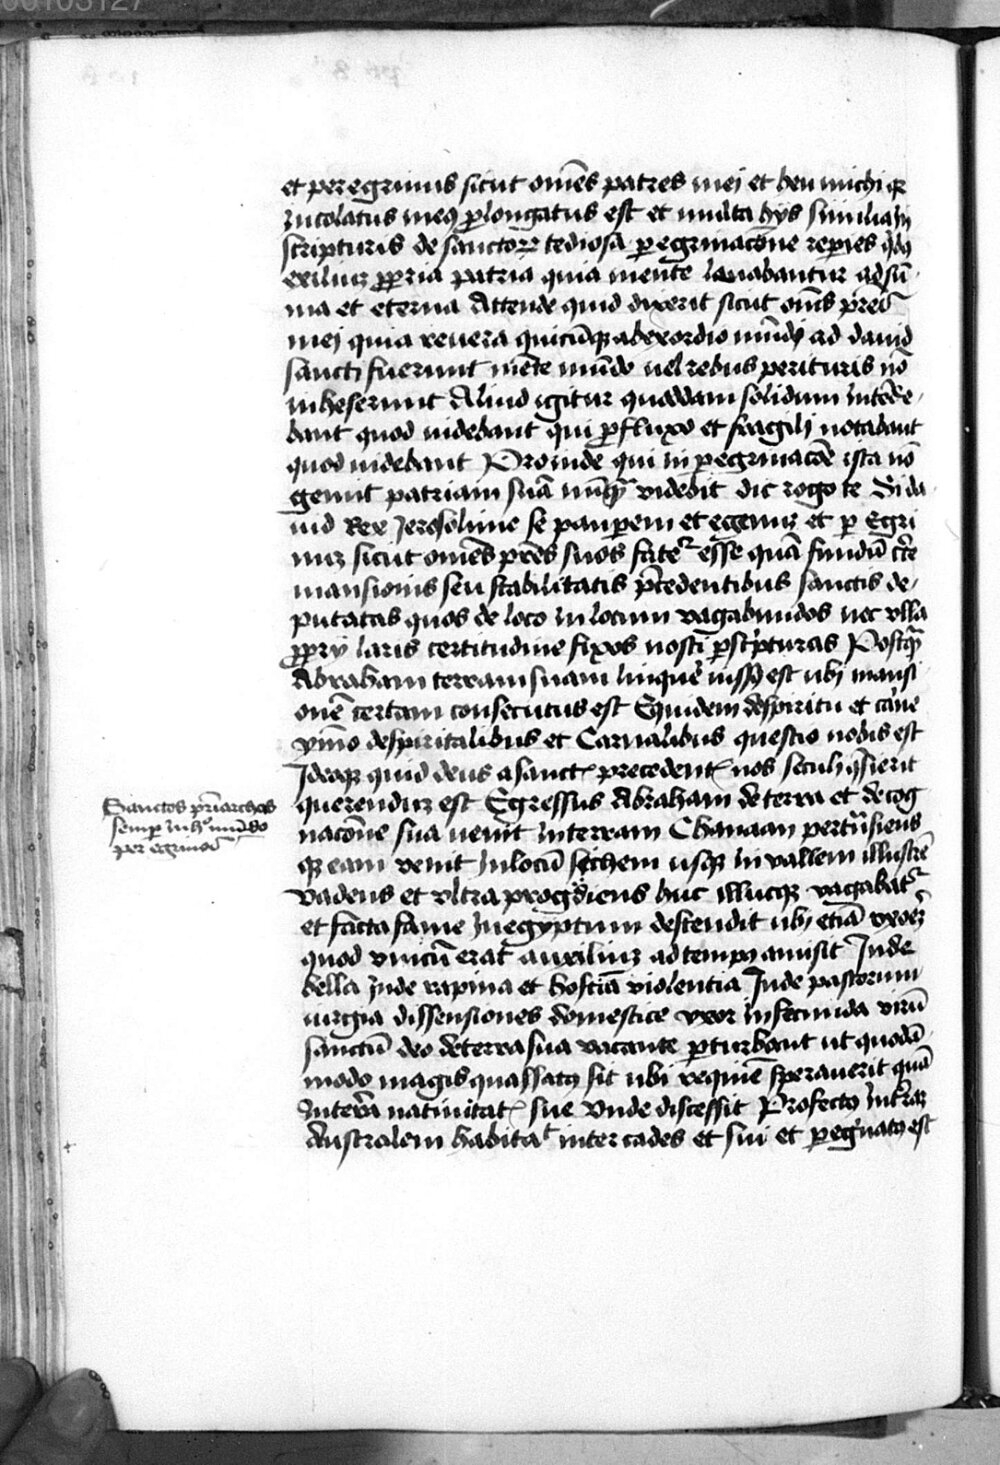 et peregrinus sicut om̄es patres mei et heu michi qz
incolatus meꝰ ꝓlongatus est et multa hijs similia in
scripturis de sanctoꝝ tediosa ꝑegrinacōne reperies qͥbꝫ
exiliuꝫ ꝓpria patria quia mente leuabantur ad sū-
ma et eterna Attende quid dixerit sicut om̄s pr̄es
mei quia reuera quicūqꝫ ab exordio mūdi ad dauid
sancti fuerunt mēte mūdo uel rebus perituris nō
inheserunt Aliud igitur quoddam solidum intēde-
bant quod uidebant qui ꝓfluxo et fragili notabant
quod uidebant Proinde qui in ꝑegrinacōe ista nō
gemit patriam suā nūqͣ videbit dic rogo te Si da-
uid Rex Jerosolime se pauperem et egenuꝫ et ꝑ Egri
nuꝫ sicut om̄es pr̄es suos fateͬ esse quā fundū cr̄e
mansionis seu stabilitatis p̄cedentibus sanctis de-
putatas quos de loco in locum vagabundos nec vlla
ꝓprij laris certitudine fixos nosti ꝑ sc̓pturas Postqͣ
Abraham terram suam linque᷑ iussꝰ est ubi mansi
onē certam consecutus est Equidem de spiritu et carne
ymo de spiritalibus et Carnalibus questio nobis est
Ideoqꝫ quid deus a sanct᷑ precedent᷑ nos seculi q̄sierit
querenduꝫ est Egressus Abraham de terra et de cog
nacōne sua uenit in terram Chanaan pertͣnsiens
qꝫ eam venit in locū sichem usqꝫ in vallem illustrē
vadens et vltra prog͛diens huc illucqꝫ vagabatͬ
et facta fame in egyptum descendit ubi etiā vxoreꝫ
quod vnicū erat auxiliuꝫ ad tempꝰ amisit Inde
bella Inde rapina et hostiū violentia Inde pastorum
iurgia dissensiones domestice vxor infecunda virū
sanctū deo de terra sua vacante ꝑturbant ut quodā-
modo magis quassatꝰ sit ubi requiē sperauerit quā
in terra natiuitat᷑ sue vnde discessit Profectꝰ in t͛raꝫ
Australem habitaᵗ inter cades et sur et ꝑeg͛natꝰ est
Sanctos pr̄iarchas
semꝑ in hͦ mūdo
peregrinos